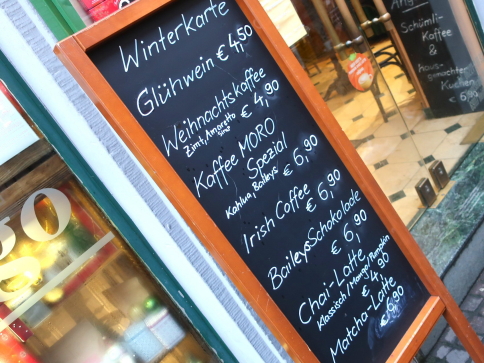 Winterkarte
Glühwein € 4,50
Weihnachtskaffee
Zimt, Amaretto
€ 4,90
Kaffee MORO
Spezial
Kahlua, Baileys € 6,90
Irish Coffee € 6,90
BaileysSchokolade
€ 6,90
Chai-Latte
Klassisch/Mango/Pumpkin
€ 4,90
Matcha-Latte
€ 6,90
Schümli-
Kaffee
&
haus-
gemachter
Kuchen
€ 6,90
go